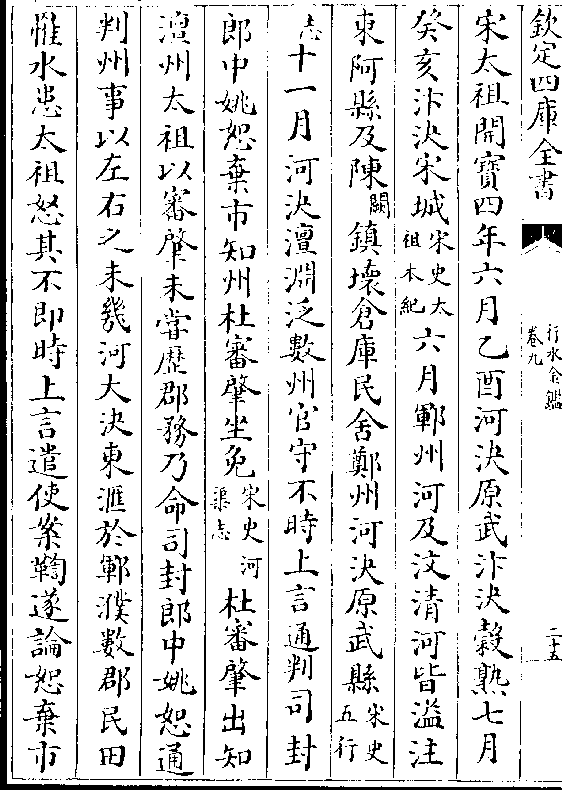 欽定四庫全書
行水金鑑
卷九
二十五
宋太祖開寳四年六月乙酉河決原武汴決穀熟七月
癸亥汴決宋城宋史太祖本紀六月鄆州河及汶清河皆溢注
東阿縣及陳闕鎮壞倉庫民舍鄭州河決原武縣宋史五行
志十一月河決澶淵泛數州官守不時上言通判司封
郎中姚恕棄市知州杜審肇坐免宋史河渠志杜審肇出知
澶州太祖以審肇未嘗歷郡務乃命司封郎中姚恕通
判州事以左右之未幾河大決東滙於鄆濮數郡民田
惟水患太祖怒其不即時上言遣使案鞫遂論恕棄市